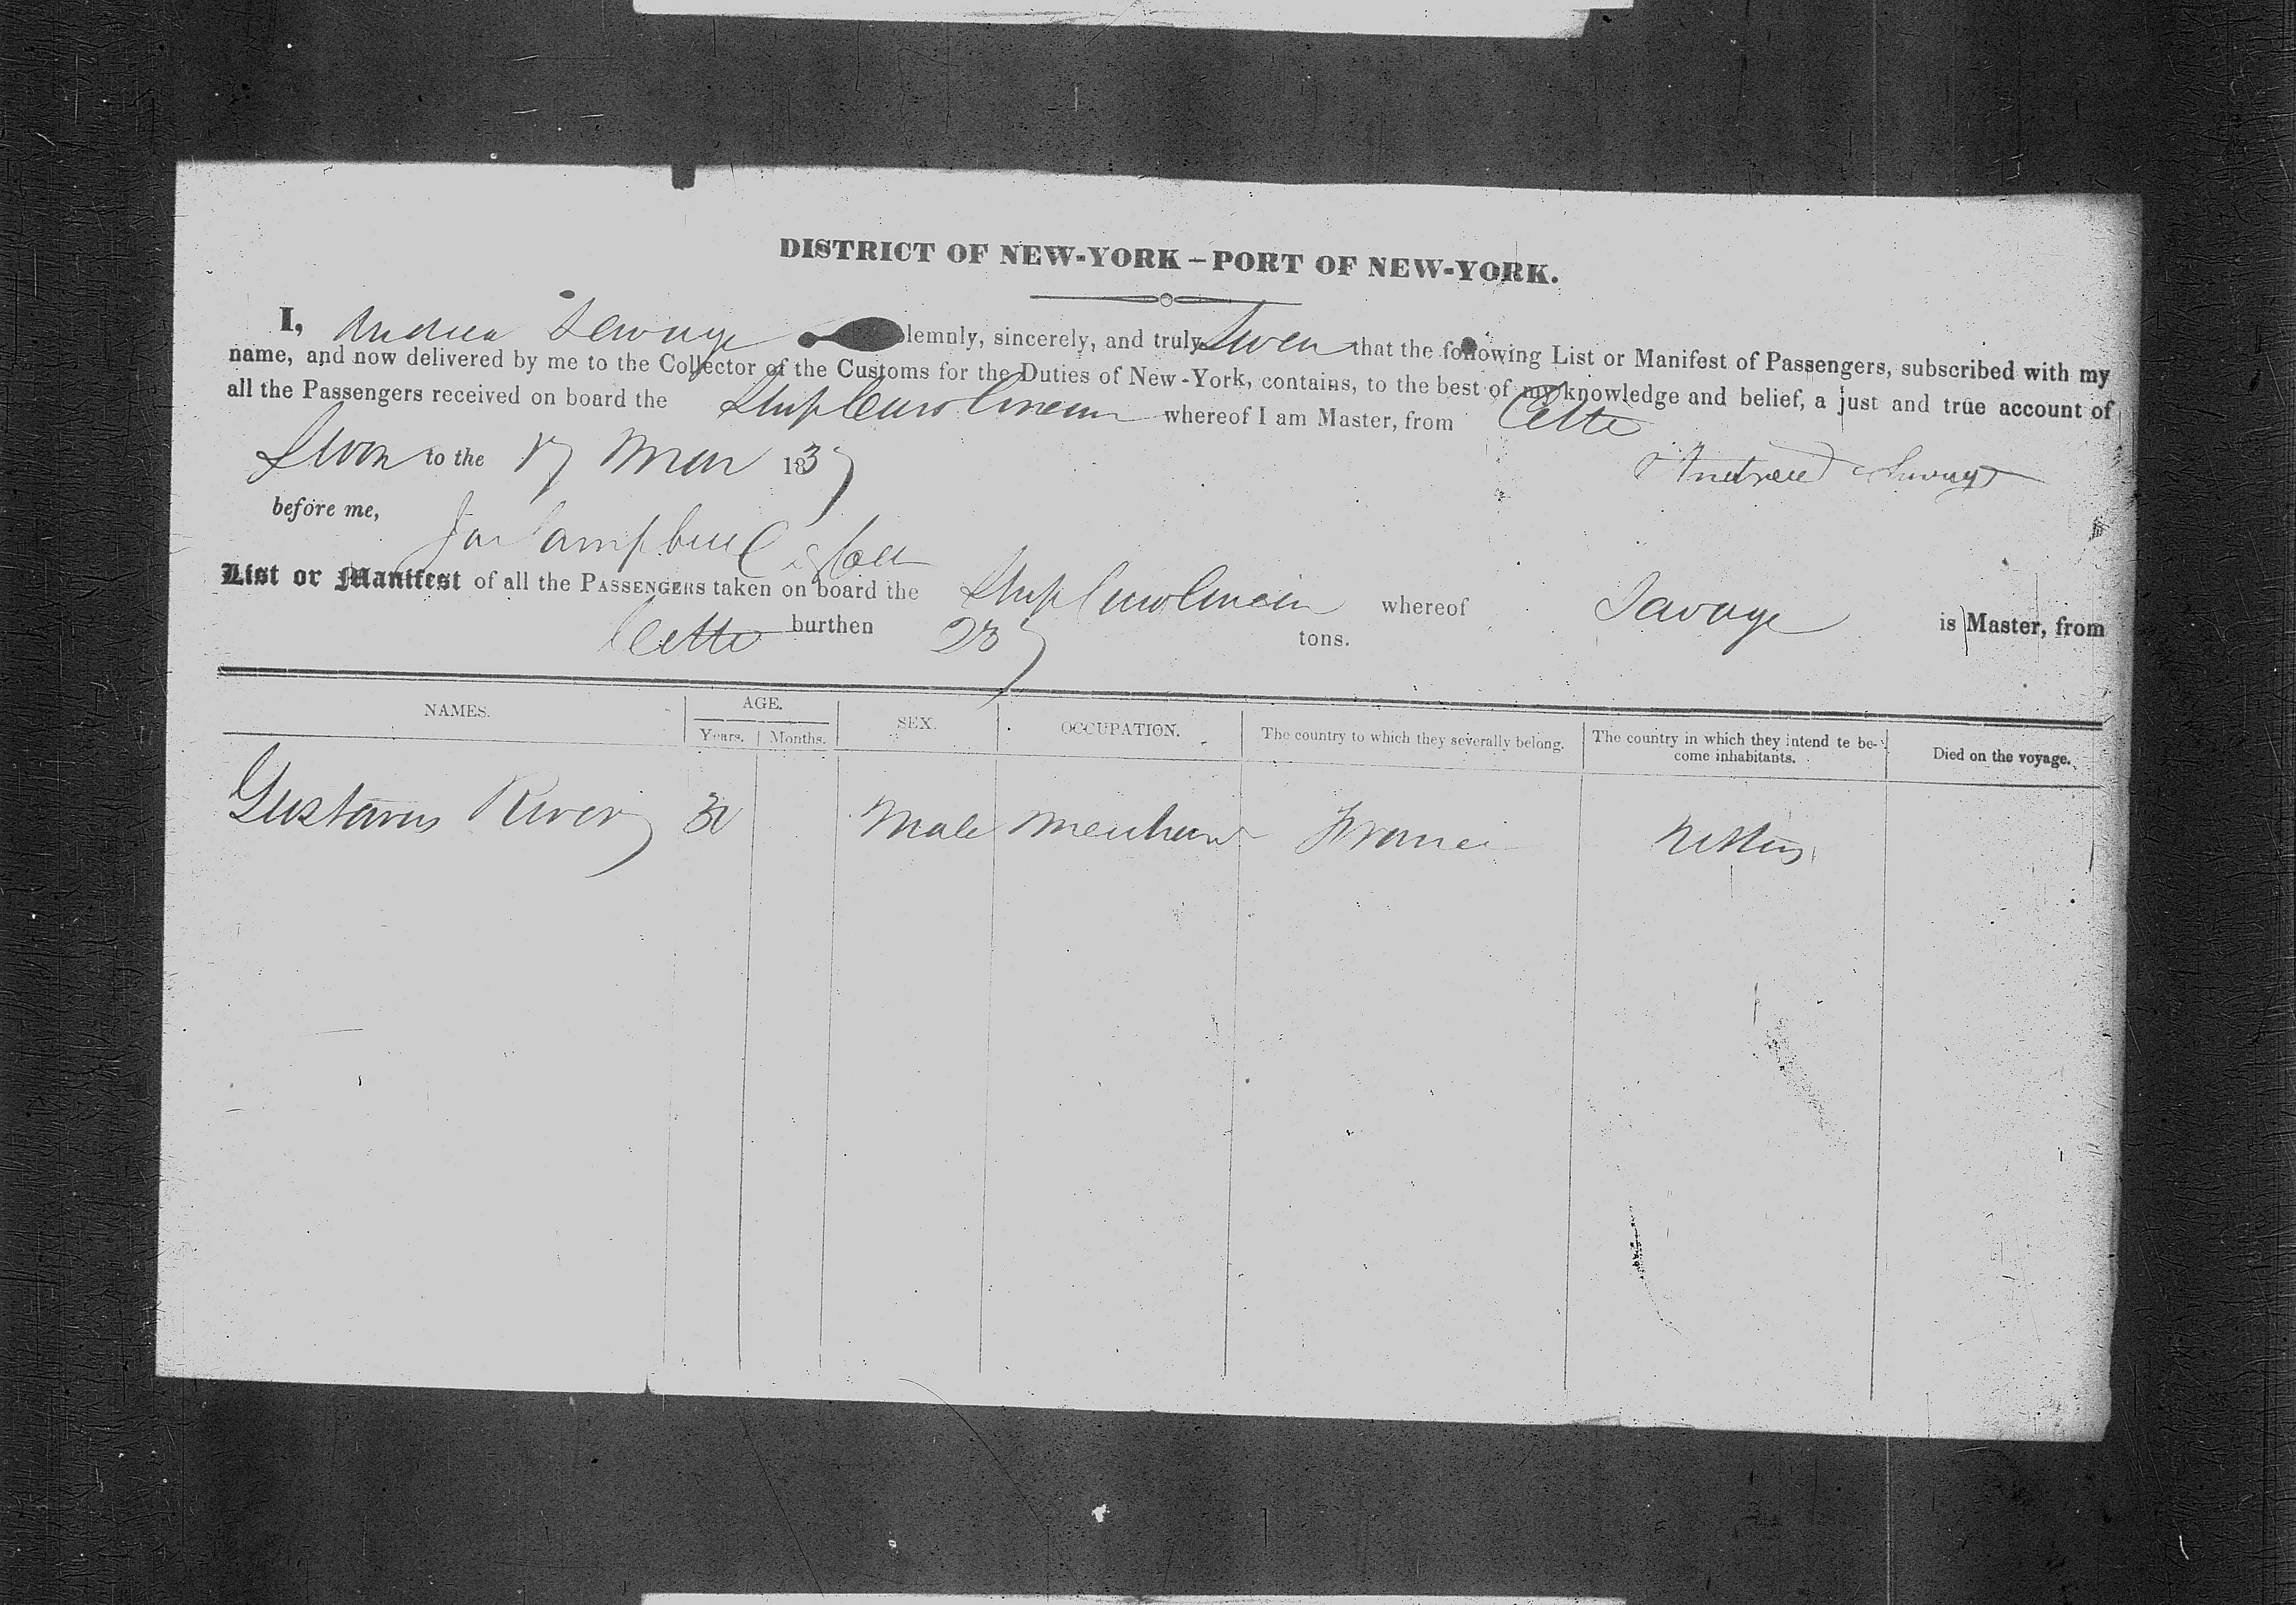 DISTRICT OF NEW-YORK – PORT OF NEW-YORK.
I, Andrew Savage lemnly, sincerely, and truly Swear that the following List or Manifest of Passengers, subscribed with my
name, and now delivered by me to the Collector of the Customs for the Duties of New-York, contains, to the best of my knowledge and belief, a just and true account of
all the Passengers received on board the Ship Carolinean whereof I am Master, from Cette
Sworn to the 17 Mar 1837 Andrew Savage
before me,
Campbell
List or Manifest of all the PASSENGERS taken on board the Ship Carolinean whereof Savage is Master, from
Cette burthen 237 tons.
NAMES. AGE. SEX. OCCUPATION. The country to which they severally belong. The country in which they intend te be-come inhabitants. Died on the voyage.
Years. Months.
Gustavus River Male Merchant France